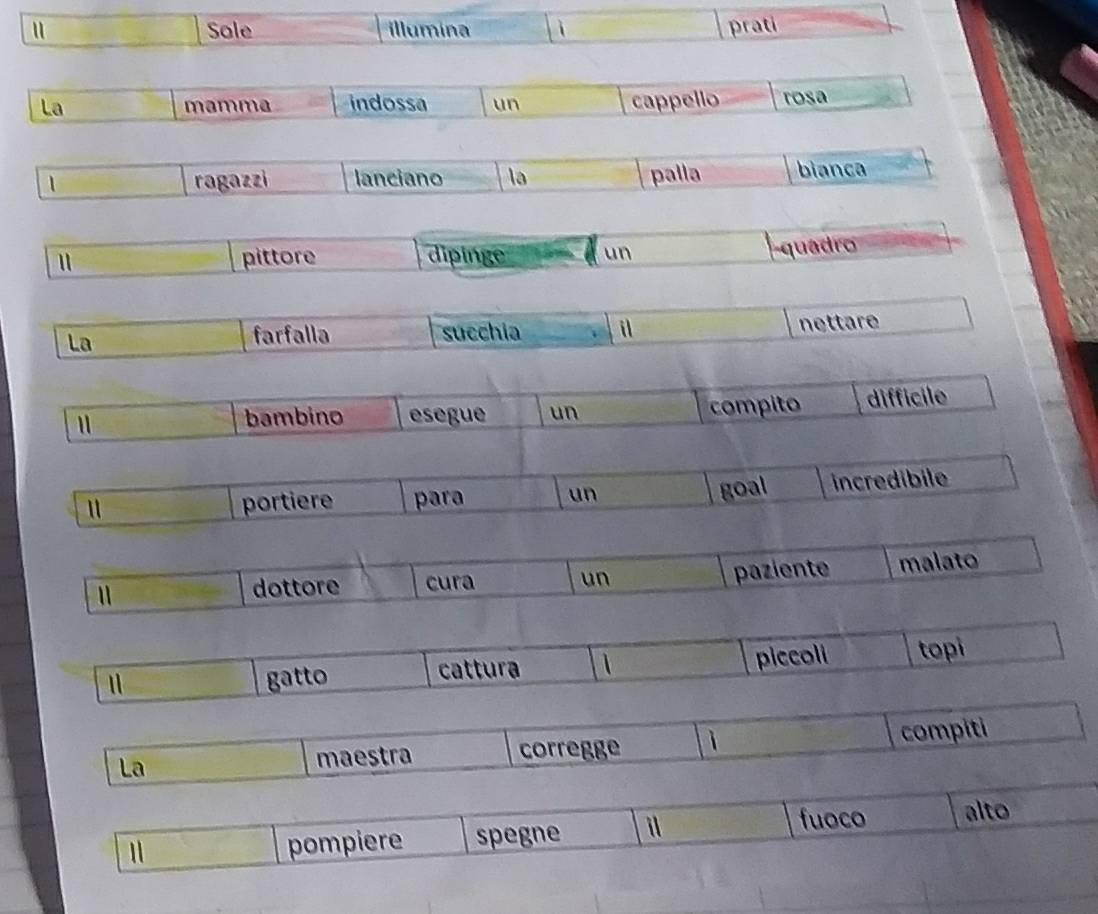 Il Sole illumina i prati
La mamma indossa un cappello rosa
I ragazzi lanciano la palla bianca
Il pittore dipinge un quadro
La farfalla succhia il nettare
Il bambino esegue un compito difficile
Il portiere para un goal incredibile
Il dottore cura un paziente malato
Il gatto cattura I piccoli topi
La maestra corregge i compiti
Il pompiere spegne il fuoco alto